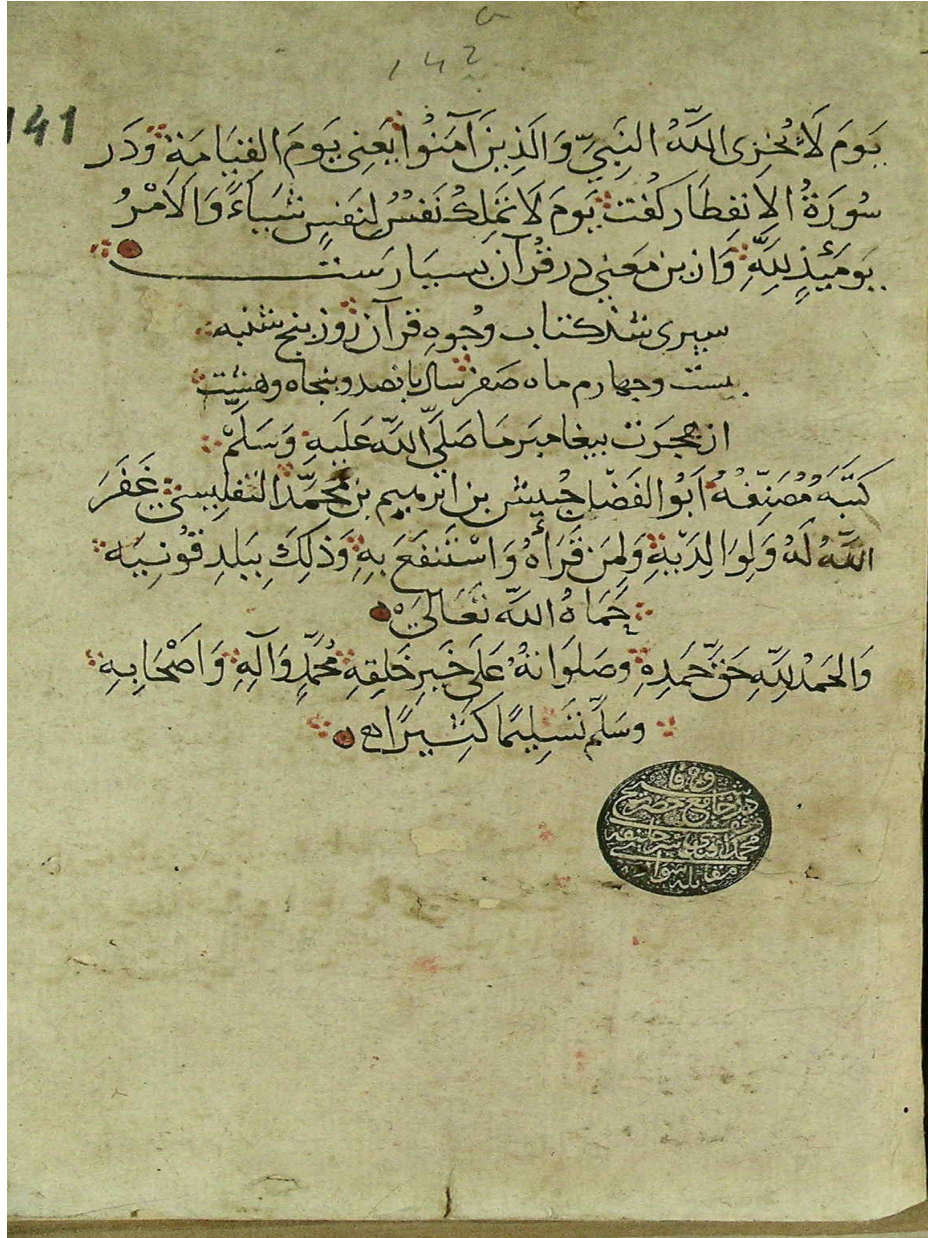 142
141
يَومَ لَا يُخزِى اللَّهُ النَبِيَّ وَالَذِينَ آمَنُوا يَعنِى يَومَ القِيَامَةِ وَدَر
سُورَةُ الاِنفِطَار كفت يَومَ لَا تَملِكُ نَفسُ لِنَفسٍ شَيـاءً وَالاَمْرُ
يومَئِذٍ لِلَّهِ وَاز ين مَعنى در قُرآن بسيَارَست
سپرى شذ كتاب وجُوهِ قرآن روز پنج شنبه
بيست وچهارم ماه صَفَر سال پانصد وپنجاه وهشت
از هجرَت پيغامبَر مَا صَلَّى اللَّه عَلَيهِ وَسَلَّمْ
كَتَبَهُ مُصَنِّفهُ اَبُو الفَضل حُبيش بن ابرهيم بن مُحمَّد التفليسىّ غَفَرَ
اللَّه لَهُ وَلِوَالِدَيهِ وَلِمَن قَرَأهُ وَاسْتَنفَعَ بِهِ وَذلِكَ بِبَلدِ قُونِيَه
حَمَاهُ اللَّه تَعَالىَ
وَالحَمدُ لِلَّهِ حَقَّ حَمدِهِ وصَلوَاتهُ عَلَى خَيرِ خَلِقِهِ مُحَمَّدٍ وَآلِهِ وَاَصْحَابِهِ
وسَلَّم تَسلِيمًا كَثِيرًا